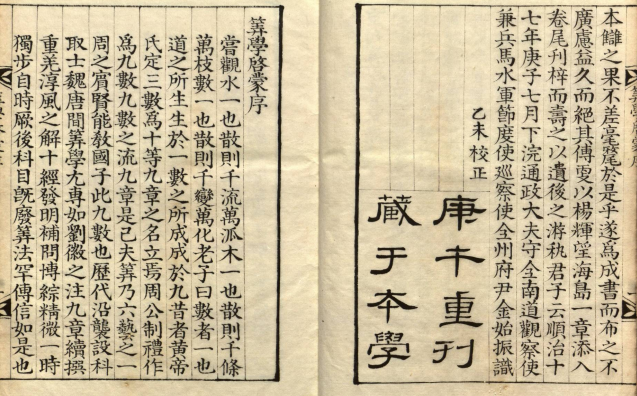 本讎之果不差毫釐於是乎遂爲成書而布之不
廣慮益久而絕其傳更以楊輝望海島一章添入
卷尾刋梓而壽之以遺後之游埶君子云順治十
七年庚子七月下浣通政大夫守全南道觀察使
兼兵馬水軍節度使巡察使全州府尹金始振識
乙未校正
庚午重刊
藏于本學
筭學啓蒙序
嘗觀水一也散則千流萬派木一也散則千條
萬枝數一也散則千變萬化老子曰數者一也
道之所生生於一數之所成成於九昔者黃帝
氏定三數爲十等九章之名立焉周公制禮作
爲九數九數之流九章是已夫筭乃六藝之一
周之賓賢能敎國子此九數也歷代沿襲設科
取士魏唐間筭學尤專如劉徽之注九章續撰
重差淳風之解十經發明補問博綜精微一時
獨步自時厥後科目旣廢筭法罕傳信如是也